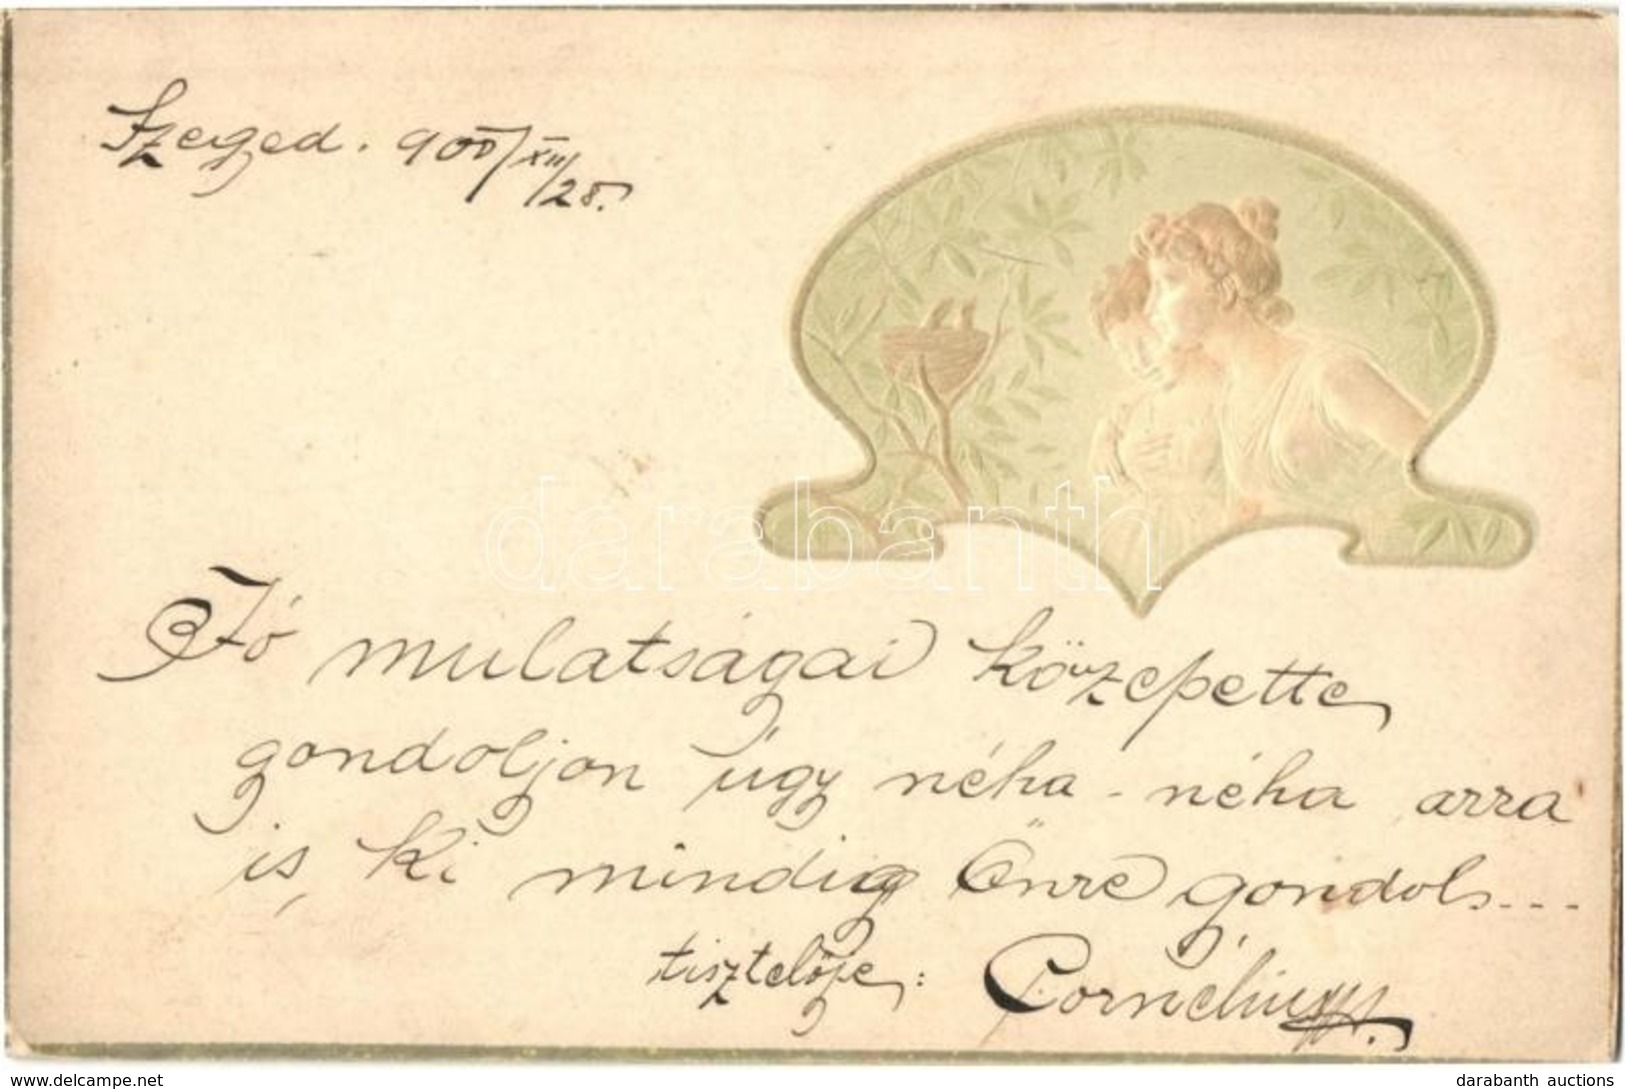 Szeged. 900/XII/28.
darabanth
Jó mulatságai közepette
gondoljon úgy néha-néha arra
is, ki mindig Önre gondol...
tisztelője: Cornélius
www.delcampe.net
darabanth auctions